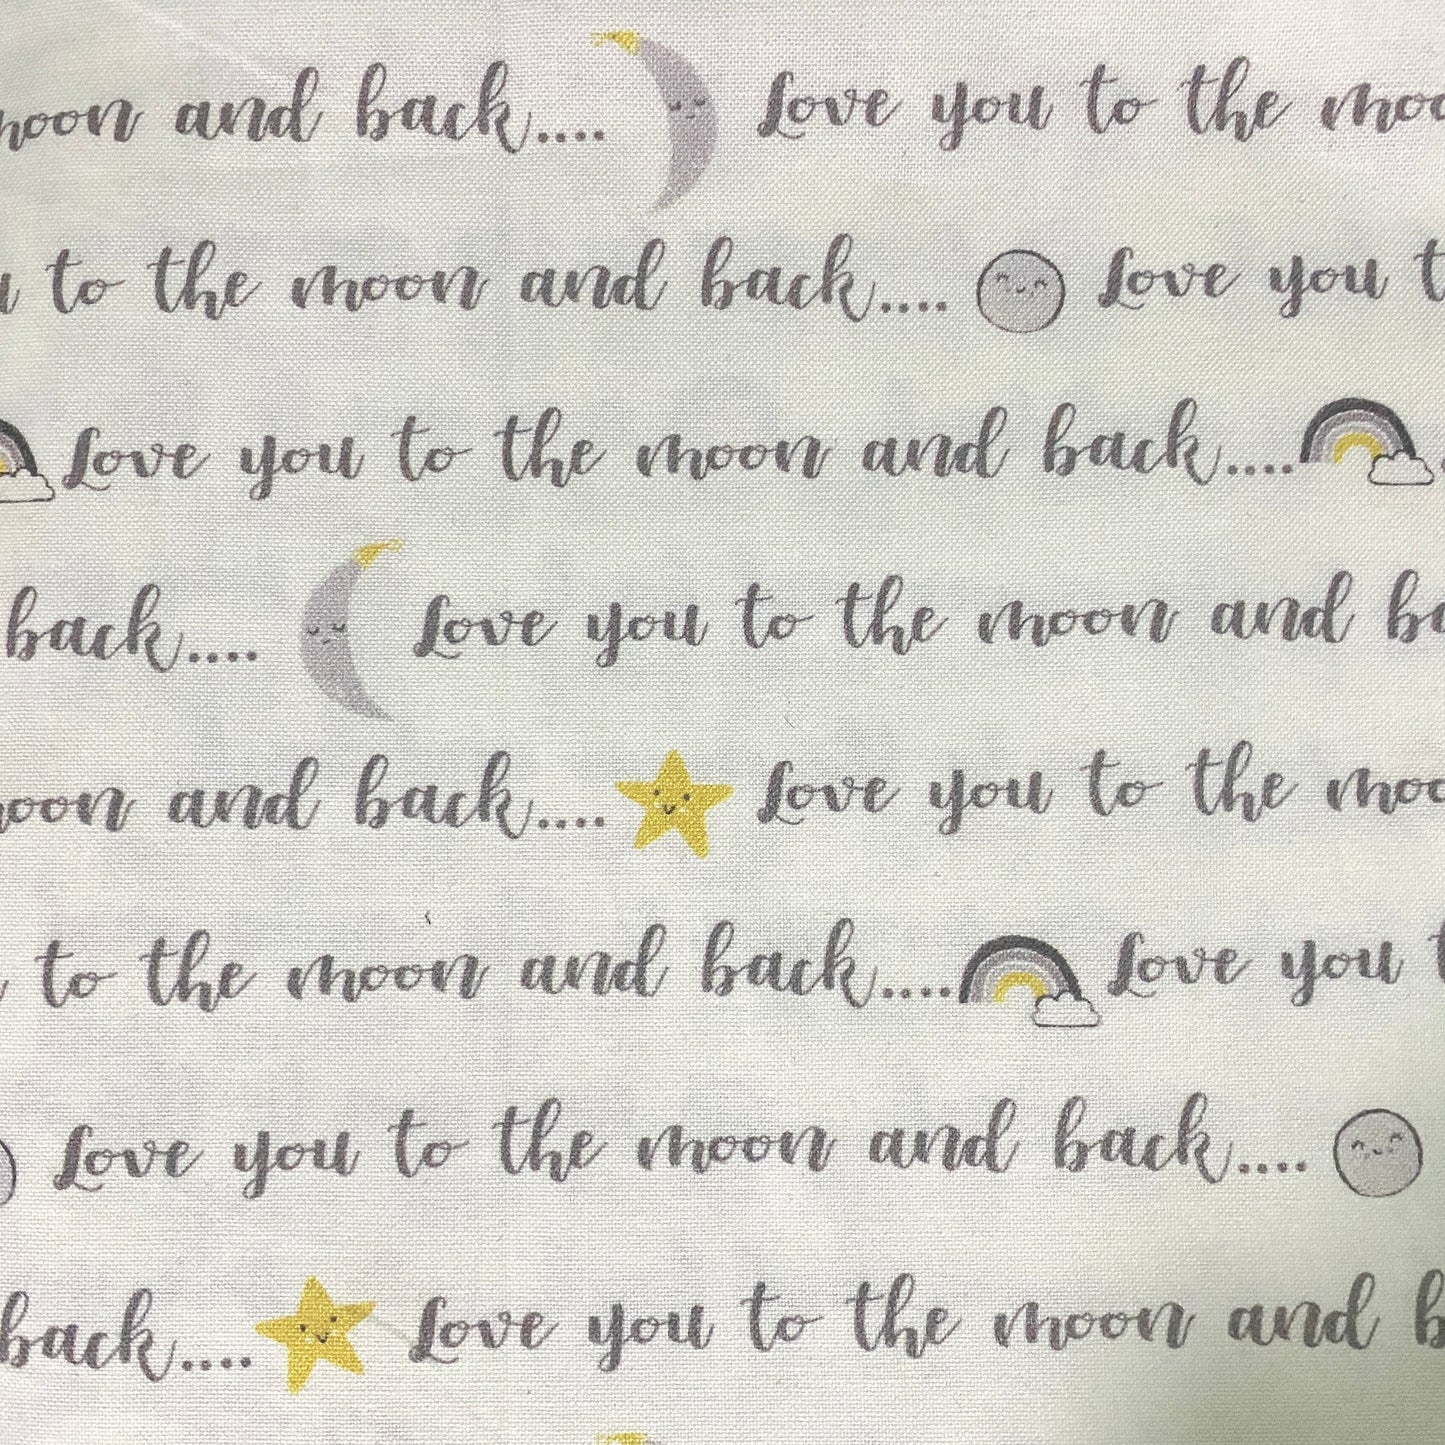 moon and back.... Love you to the moo
u to the moon and back.... Love you t
Love you to the moon and back....
back.... Love you to the moon and ba
oon and back.... Love you to the moo
to the moon and back.... Love you t
Love you to the moon and back....
back.... Love you to the moon and b